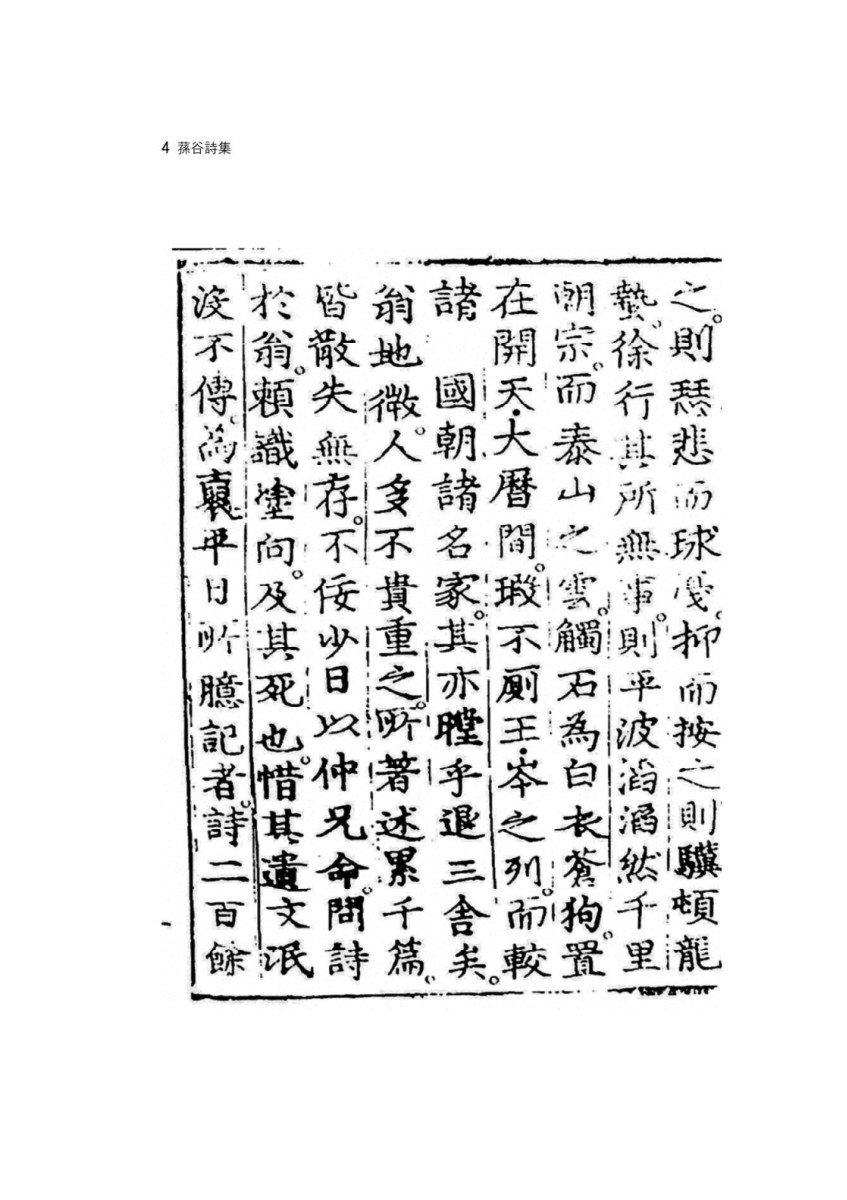 4 蓀谷詩集
之。則瑟悲而球戛。抑而按之則驥頓龍
蟄。徐行其所無事。則平波滔滔然千里
朝宗。而泰山之雲。觸石為白衣蒼狗。置
在開天·大曆間。瑕不厠王·岑之列。而較
諸 國朝諸名家。其亦瞠乎退三舍矣。
翁地微。人多不貴重之。所著述累千篇。
皆散失無存。不佞少日以仲兄命。問詩
於翁。頼識塗向。及其死也。惜其遺文泯
沒不傳。為裒平日所臆記者。詩二百餘